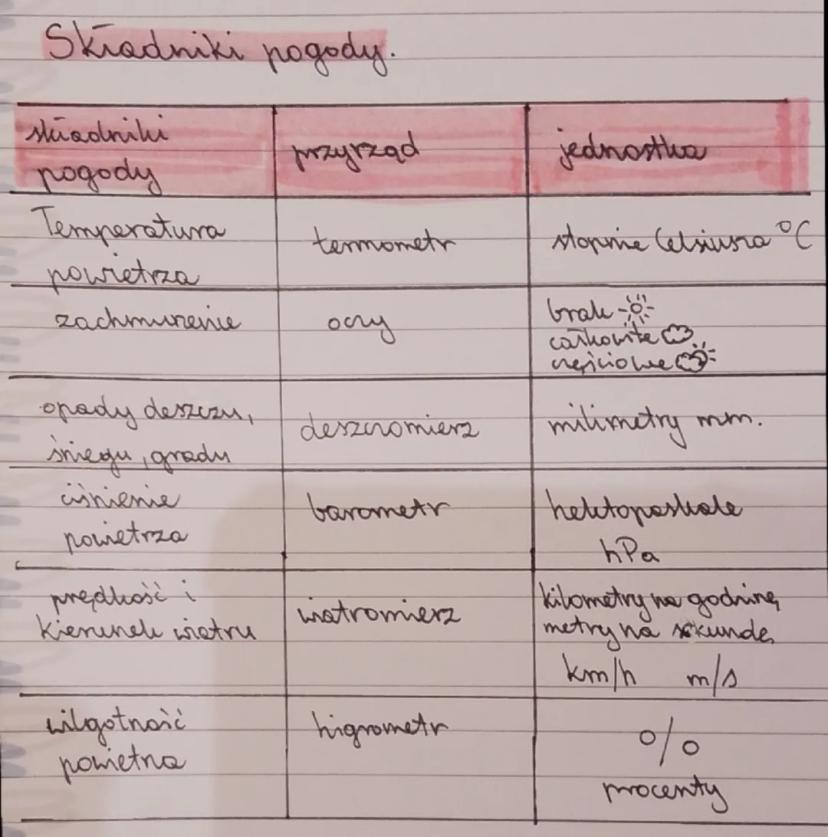 Składniki pogody.
składniki
pogody
przyrząd
jednostka
Temperatura
powietrza
termometr
stopnie Celsiusza °C
zachmurzenie
oczy
brak
całkowite
częściowe
opady deszczu,
śniegu, gradu
deszczomierz
milimetry mm.
ciśnienie
powietrza
barometr
hektopaskale
hPa
prędkość i
kierunek wiatru
wiatromierz
kilometry na godzinę
metry na sekundę
km/h m/s
wilgotność
powietrza
higrometr
%
procenty